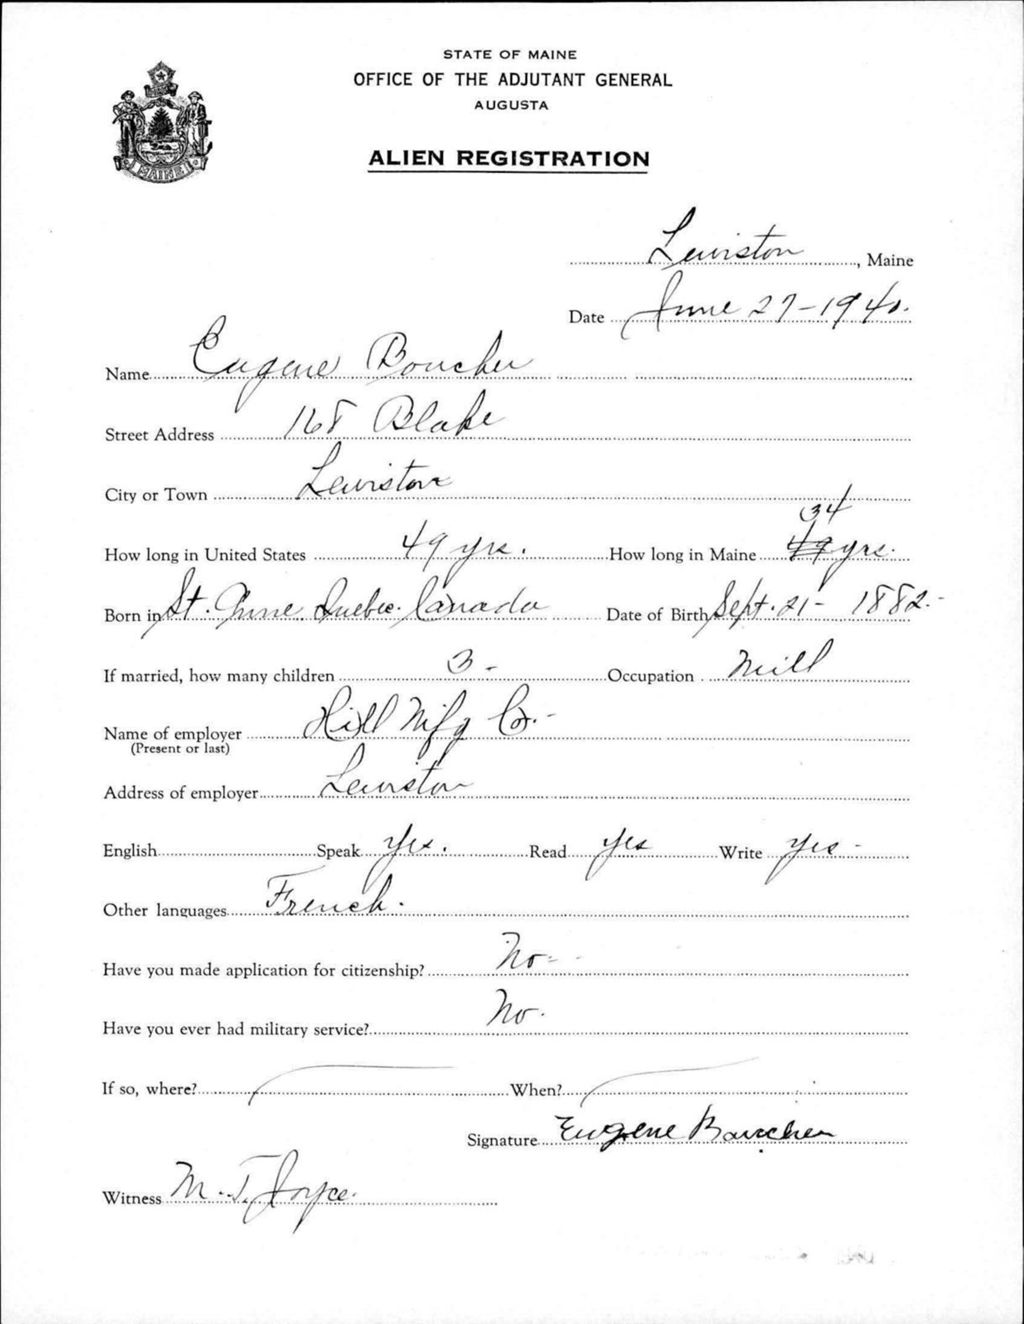 STATE OF MAINE
OFFICE OF THE ADJUTANT GENERAL
AUGUSTA
ALIEN REGISTRATION
MAINE
Lewiston, Maine
Date June 27-1940.
Name Eugene Boucher
Street Address 168 Blake
City or Town Lewiston
34
How long in United States 49 yrs. How long in Maine 49 yrs.
Born in St. Anne Quebec. Canada Date of Birth Sept. 21- 1882.-
If married, how many children 3- Occupation Mill
Name of employer Hill Mfg Co.-
(Present or last)
Address of employer Lewiston
English Speak Yes. Read Yes Write Yes-
Other languages French.
Have you made application for citizenship? No-
Have you ever had military service? No.
If so, where? When?
Signature Eugene Boucher
Witness M. T. Joyce.